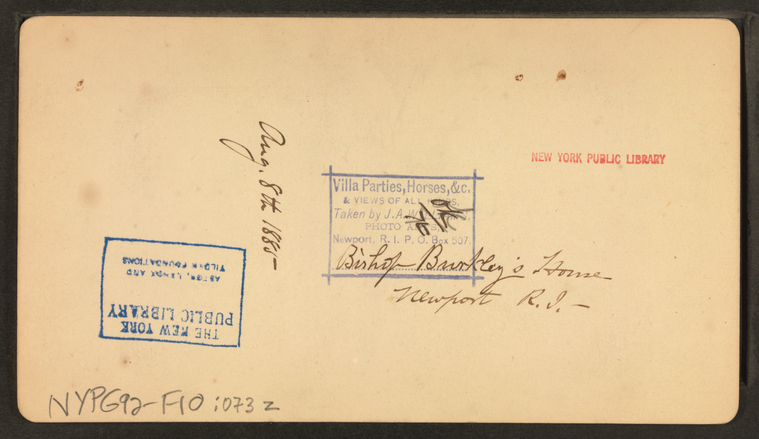 NEW YORK PUBLIC LIBRARY
Aug. 8th 1885-
Villa Parties, Horses, &c.
& VIEWS OF ALL
Taken by J. A.
PHOTO
Newport, R. I. P. O. Box 507.
Bishop House
Newport R.I.-
THE NEW YORK
PUBLIC LIBRARY
ASTOR, LENOX AND
TILDEN FOUNDATIONS
NYPG92-F10:073z